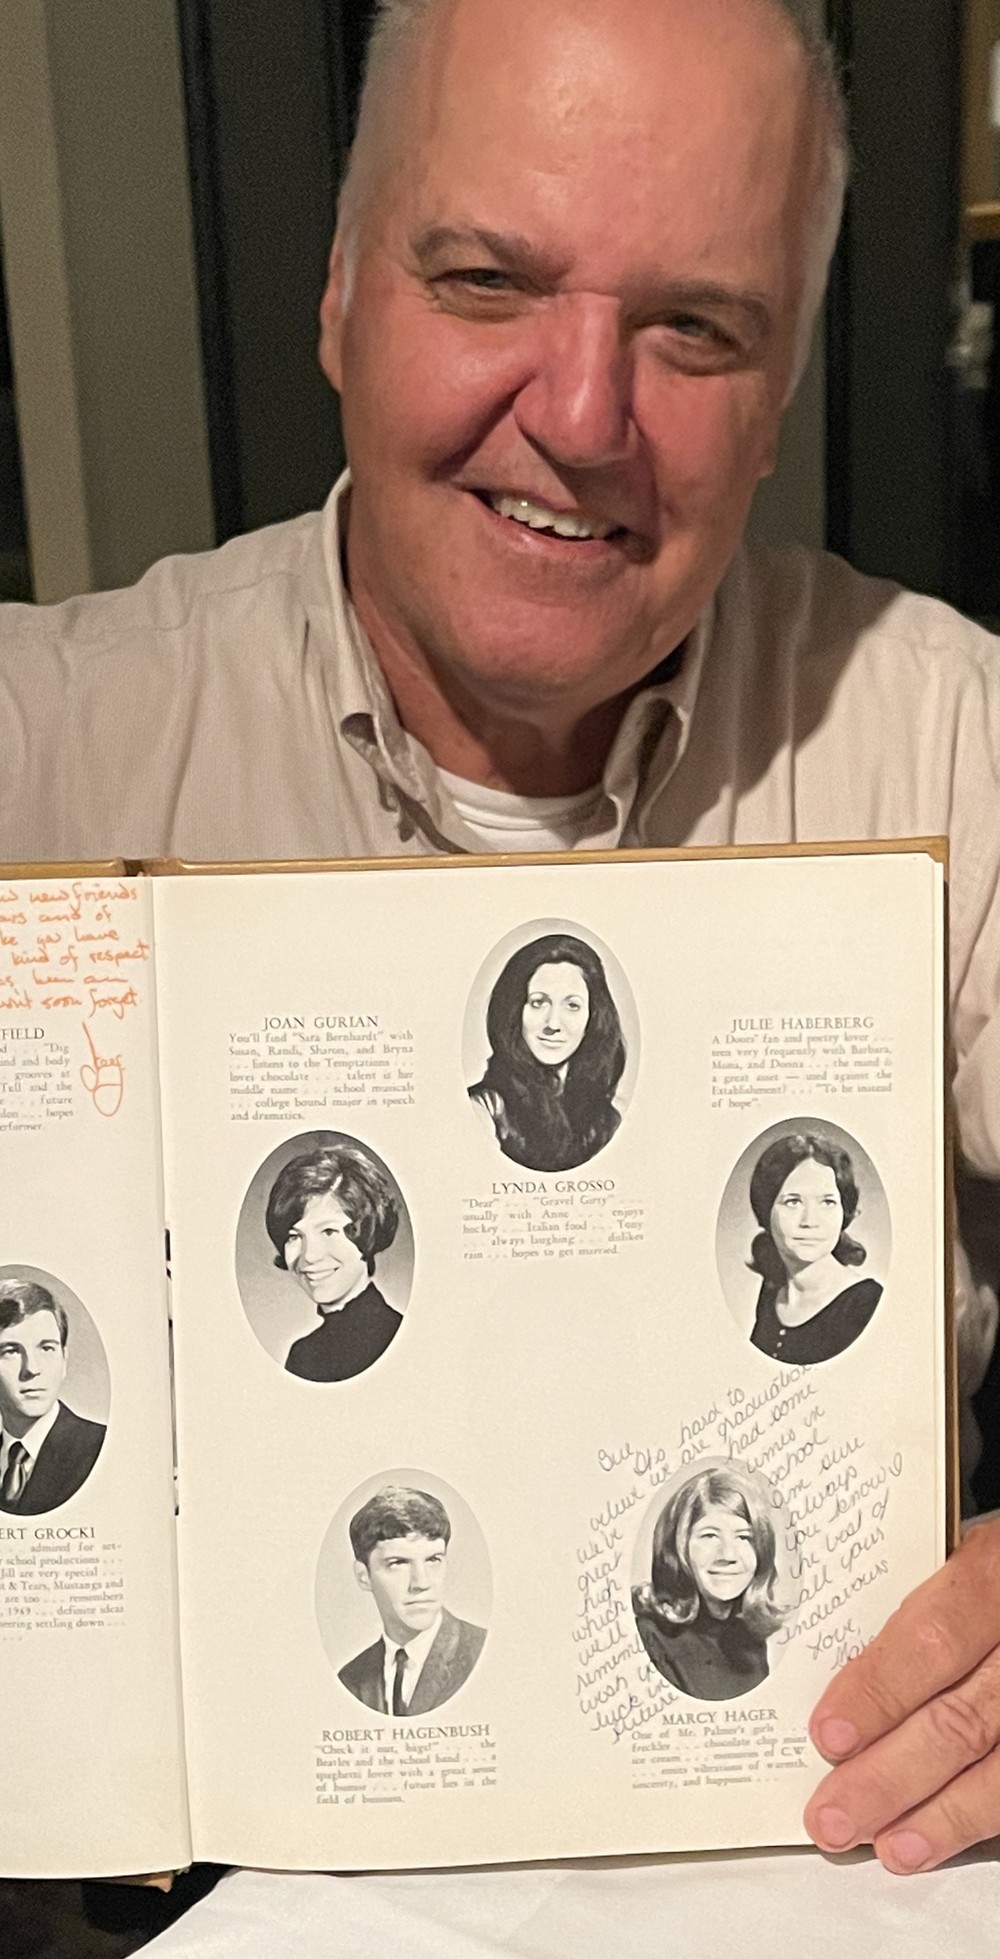 new friends
and of
ke you have
kind of respect
as been an
won't soon forget.
FIELD
d . . . "Dig
ind and body
. . . grooves at
Tell and the
e . . . future
don . . . hopes
erformer.
ERT GROCKI
. . . admired for set-
r school productions . . .
Jill are very special . . .
t & Tears, Mustangs and
are too . . . remembers
, 1969 . . . definite ideas
neering settling down . . .
JOAN GURIAN
You'll find "Sara Bernhardt" with
Susan, Randi, Sharon, and Bryna
. . . listens to the Temptations . . .
loves chocolate . . . talent is her
middle name . . . school musicals
. . . college bound major in speech
and dramatics.
LYNDA GROSSO
"Dear" . . . "Gravel Girty" . . .
usually with Anne . . . enjoys
hockey . . . Italian food . . . Tony
. . . always laughing . . . dislikes
rain . . . hopes to get married.
JULIE HABERBERG
A Doors' fan and poetry lover . . .
seen very frequently with Barbara,
Mona, and Donna . . . the mind is
a great asset — used against the
Establishment! . . . "To be instead
of hope".
ROBERT HAGENBUSH
"Check it out, bags!" . . . the
Beatles and the school band . . . a
spaghetti lover with a great sense
of humor . . . future lies in the
field of business.
Sue,
It's hard to
believe we are graduating.
We've had some
great times in
high school
which I am sure
we'll always
remember. you know I
wish you the best of
luck in all your
future endeavours
Love,
MARCY HAGER
One of Mr. Palmer's girls . . .
freckles . . . chocolate chip mint
ice cream . . . memories of C.W.
. . . emits vibrations of warmth,
sincerity, and happiness . . .